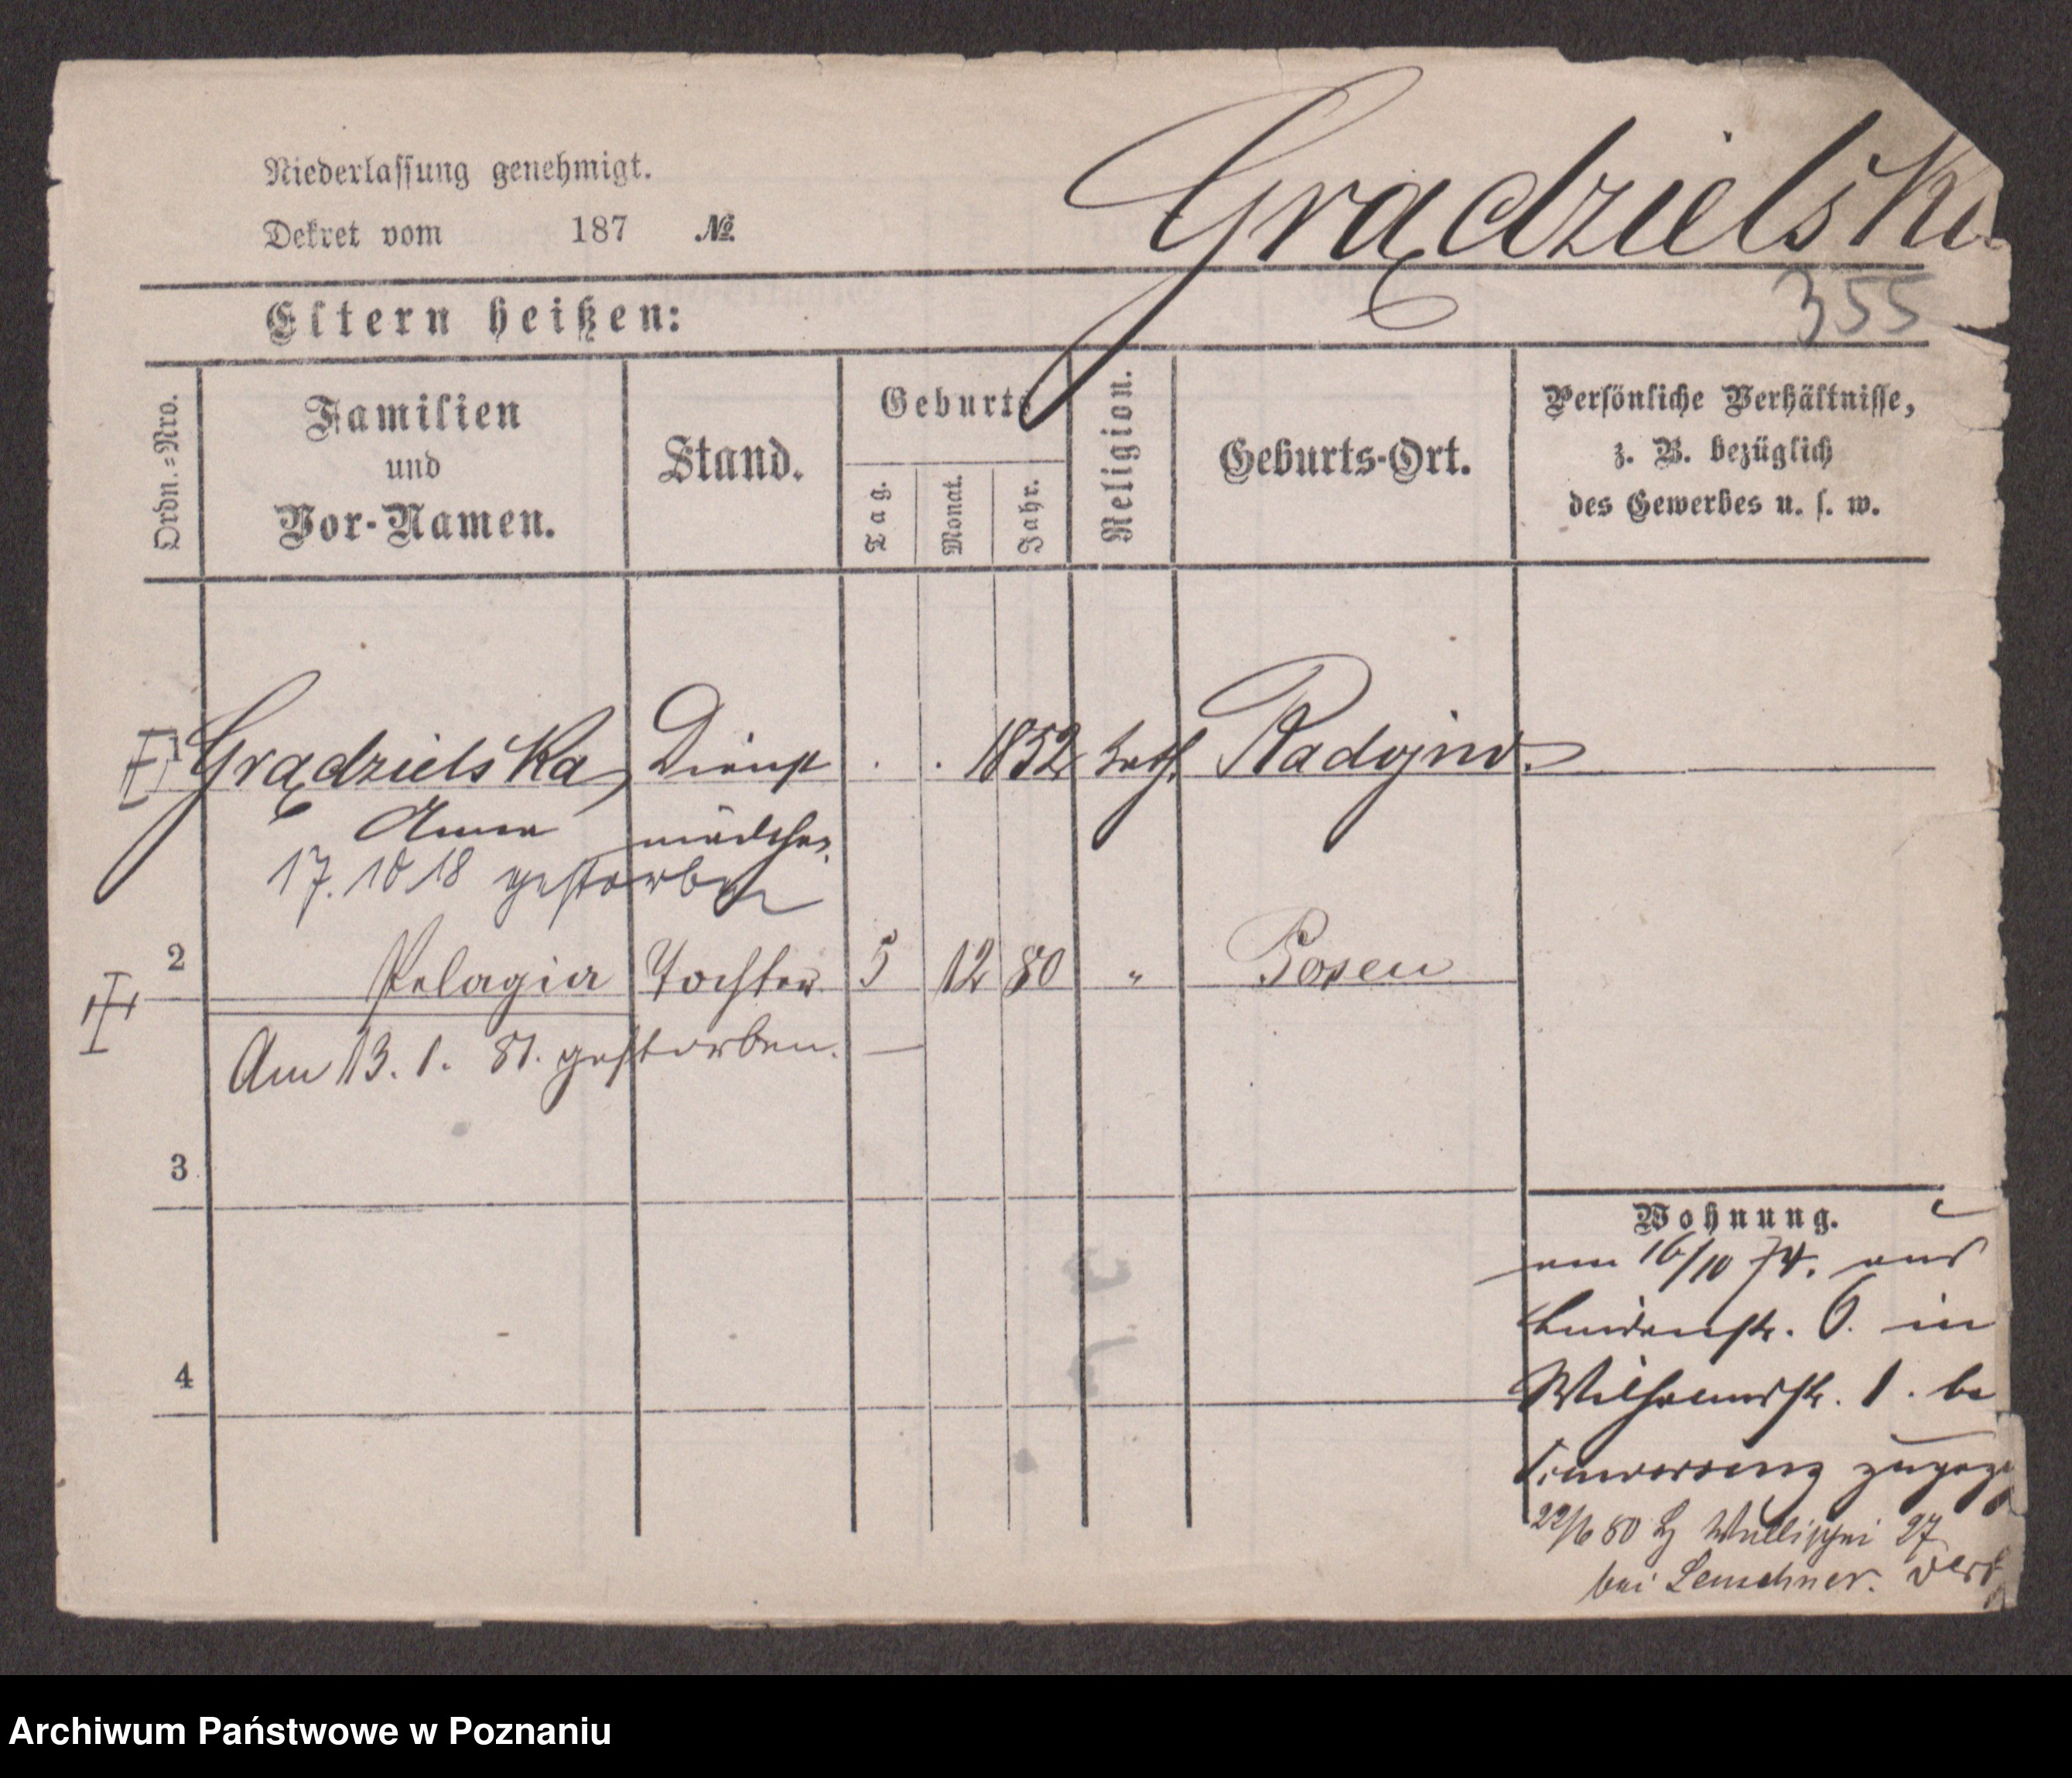 Niederlassung genehmigt.
Dekret vom 187 №
Grądzielska
355
Eltern heißen:
Ordn.=Nro.
Familien
und
Vor-Namen.
Stand.
Geburts
Tag.
Monat.
Jahr.
Religion.
Geburts-Ort.
Persönliche Verhältnisse,
z. B. bezüglich
des Gewerbes u. s. w.
1 Grądzielska, Dienst . . 1852 kath. Radojno.
Anna mädchen.
17. 10 18 gestorben
2 Pelagia Tochter 5 12 80 " Posen
Am 13. 1. 81. gestorben. —
3
Wohnung.
am 16/10 74. aus
Lindenstr. 6. in
4
Wilhelmstr. 1. bei
zugezog
22/6 80 Wallischei 27
bei Lenschner.
Archiwum Państwowe w Poznaniu